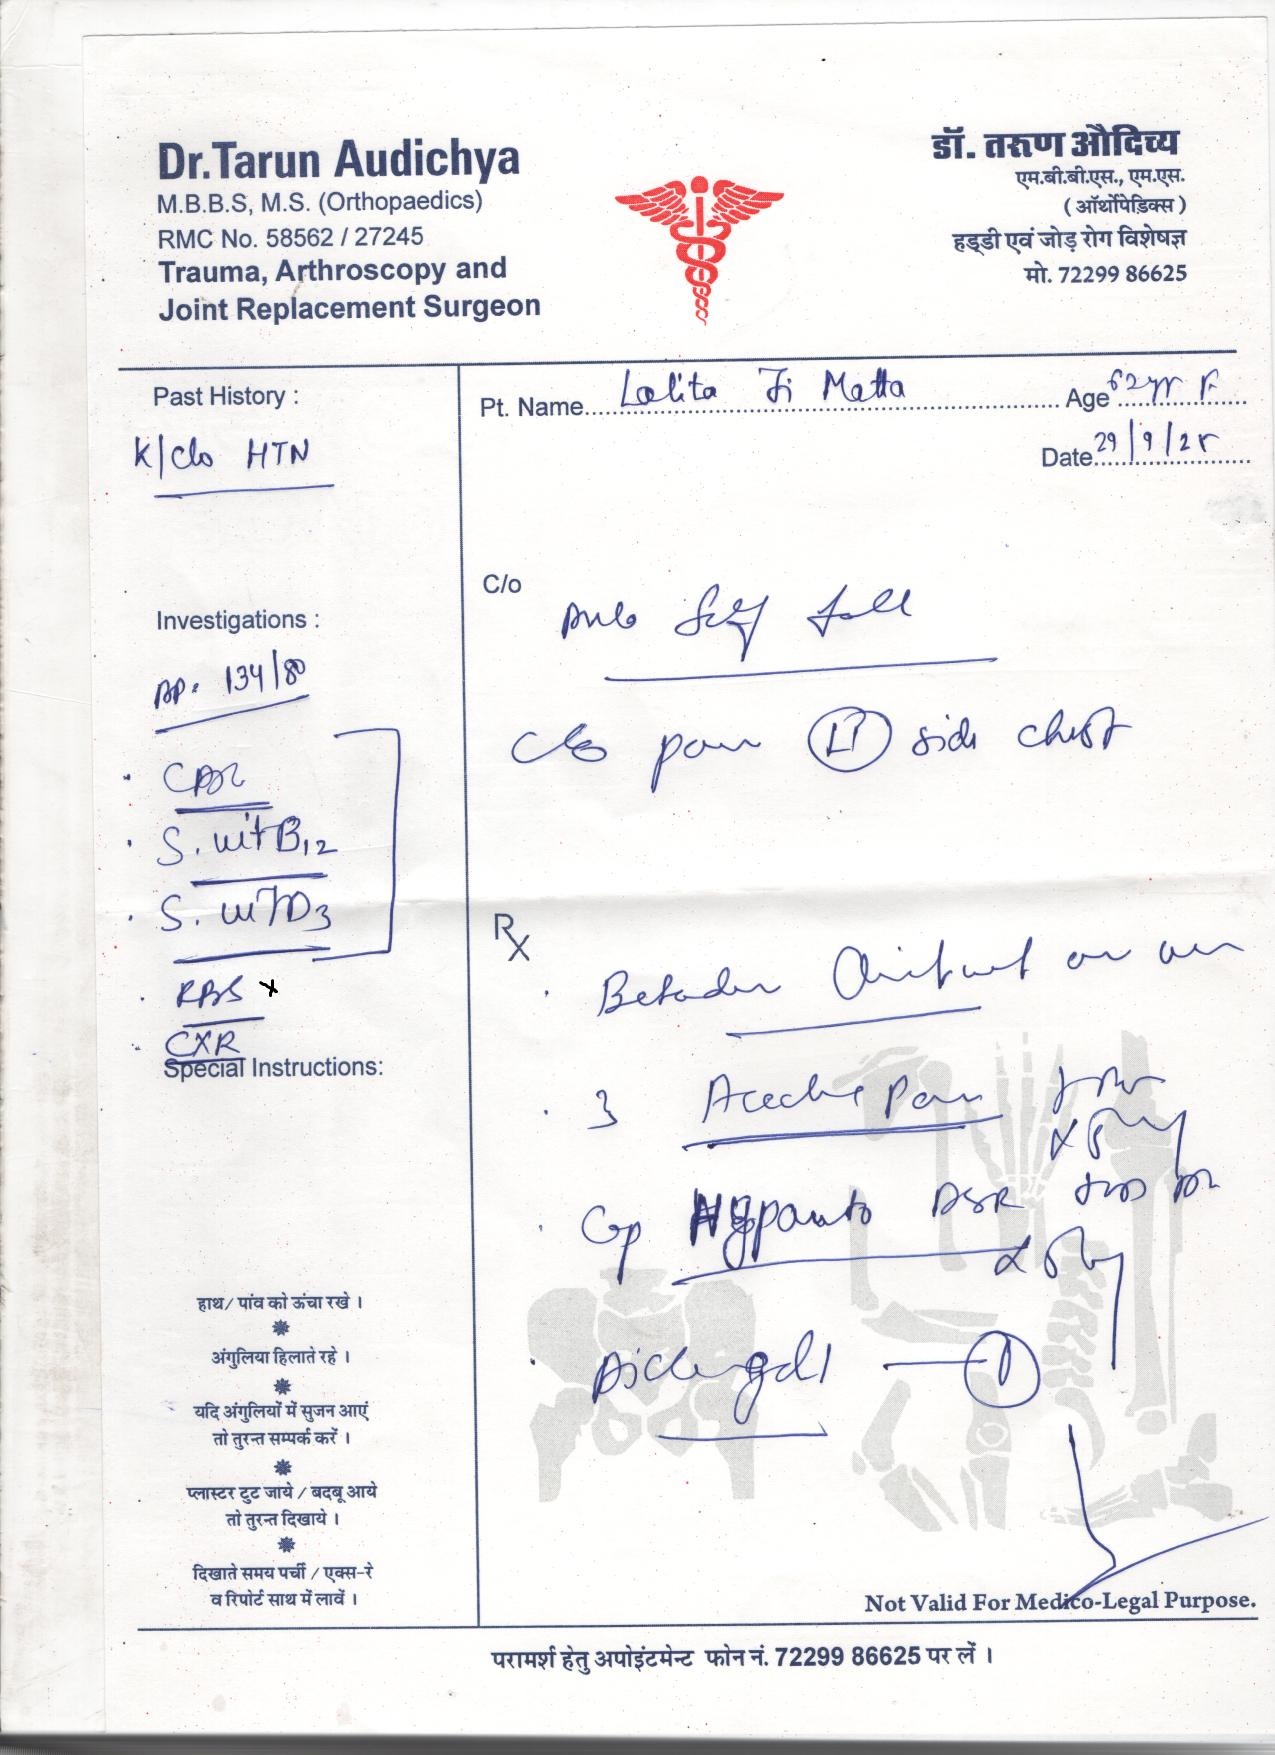 Dr.Tarun Audichya
M.B.B.S, M.S. (Orthopaedics)
RMC No. 58562 / 27245
Trauma, Arthroscopy and
Joint Replacement Surgeon
डॉ. तरूण औदिच्य
एम.बी.बी.एस., एम.एस.
( ऑर्थोपेड़िक्स )
हड्डी एवं जोड़ रोग विशेषज्ञ
मो. 72299 86625
Past History :
K/c/o HTN
Pt. Name Lalita Ji Metta Age 62 yr F
Date 29/9/25
Investigations :
BP: 134/80
CBC
S. vit B12
S. vit D3
RBS x
CXR
Special Instructions:
हाथ/ पांव को ऊंचा रखे ।
अंगुलिया हिलाते रहे ।
यदि अंगुलियों में सुजन आएं
तो तुरन्त सम्पर्क करें ।
प्लास्टर टुट जाये / बदबू आये
तो तुरन्त दिखाये ।
दिखाते समय पर्ची / एक्स-रे
व रिपोर्ट साथ में लावें ।
C/o
Self fall
c/o pain side chest
Rx
Betadine Ointment
Pan
Cap DSR
1
Not Valid For Medico-Legal Purpose.
परामर्श हेतु अपोइंटमेन्ट फोन नं. 72299 86625 पर लें ।